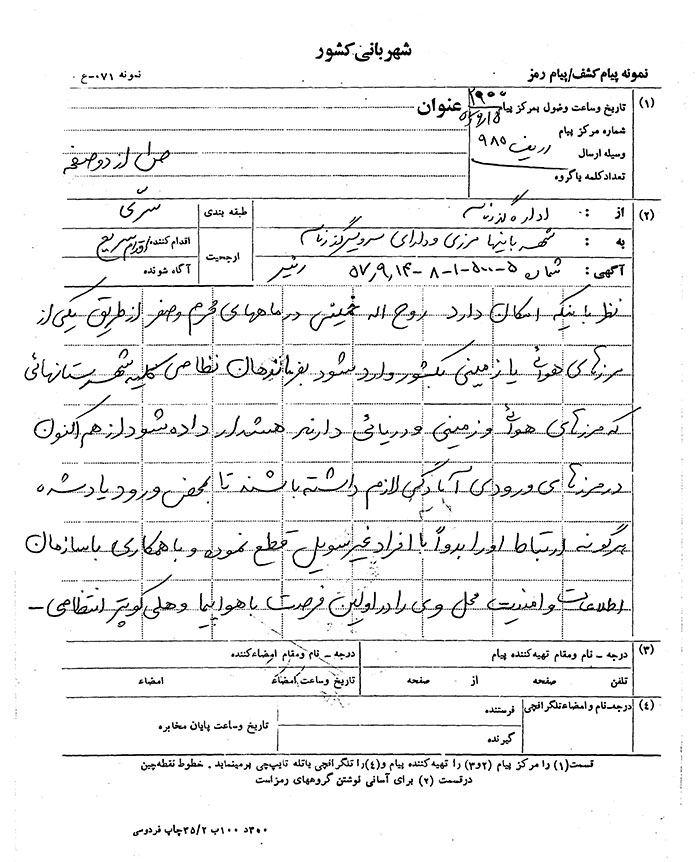 شهربانی کشور
نمونه پیام کشف/پیام رمز
نمونه ۰۷۱-ع
(۱) تاریخ وساعت وصول بمرکز پیام
عنوان
شماره مرکز پیام
وسیله ارسال
ردیف ۹۸۵
تعدادکلمه یاگروه
ص ۱ از دو صفحه
(۲) از : اداره گذرنامه
طبقه بندی سرّی
به : شهربانیهای مرزی و دارای سرویس گذرنامه
ارجحیت
اقدام کننده: اقدام سریع
آگهی: شماره ۵-۵۰۰-۱-۸-۵۷٫۹٫۱۴ رئیس
آگاه شونده
نظر باینکه امکان دارد روح اله خمینی در ماههای محرم و صفر از طریق یکی از
مرزهای هوائی یا زمینی بکشور وارد شود بفرماندهان نظامی کلیه شهرستانهائی
که مرزهای هوائی و زمینی و دریائی دارند هشدار داده شود از هم اکنون
در مرزهای ورودی آمادگی لازم داشته باشند تا بمحض ورود یادشده
هرگونه ارتباط او را بدواً با افراد غیر سویل قطع نموده و با همکاری با سازمان
اطلاعات و امنیت محل وی را در اولین فرصت با هواپیما و هلی کوپتر انتظامی -
(۳) درجه - نام ومقام تهیه کننده پیام
درجه - نام ومقام امضاءکننده
تلفن صفحه از صفحه
تاریخ وساعت امضاء امضاء
(۴) درجه-نام و امضاء تلگرافچی
فرستنده
گیرنده
تاریخ وساعت پایان مخابره
قسمت(۱) را مرکز پیام (۲و۳) را تهیه کننده پیام و(۴) را تلگرافچی یاتله تایپ‌چی پرمینماید. خطوط نقطه‌چین
درقسمت (۲) برای آسانی نوشتن گروههای رمزاست
۳۰۰د ۱۰۰ب ۳۵/۲ چاپ فردوسی